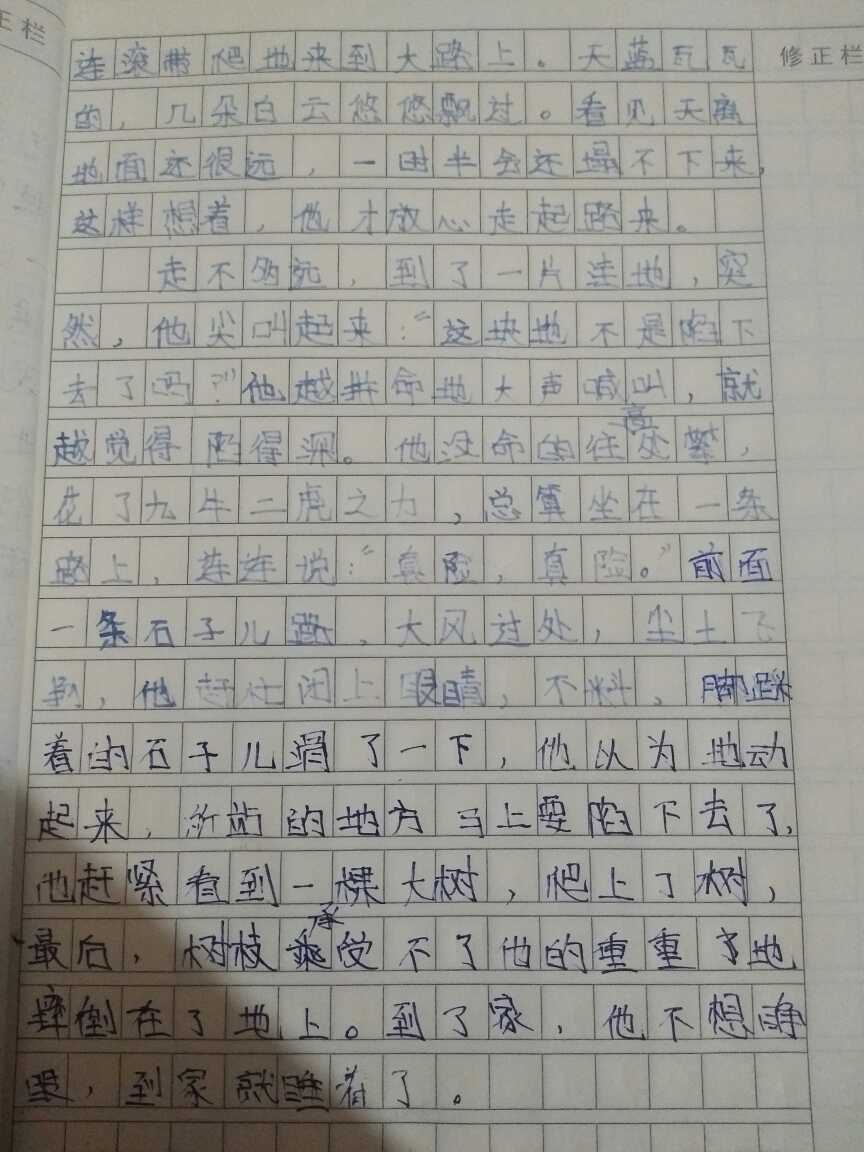 正栏
修正栏
连滚带爬地来到大路上。天蓝瓦瓦
的，几朵白云悠悠飘过。看见天离
地面还很远，一时半会还塌不下来，
这样想着，他才放心走起路来。
走不多远，到了一片洼地，突
然，他尖叫起来：“这块地不是陷下
去了吗？”他越拼命地大声喊叫，就
越觉得陷得深。他没命的往高处攀，
花了九牛二虎之力，总算坐在一条
路上，连连说：“真险，真险。”前面
一条石子儿路，大风过处，尘土飞
，他赶忙闭上眼睛，不料，脚踩
着的石子儿滑了一下，他以为地动
起来，所站的地方马上要陷下去了，
他赶紧看到一棵大树，爬上了树，
最后，树枝承受不了他的重重地
摔倒在了地上。到了家，他不想睁
眼，到家就睡着了。